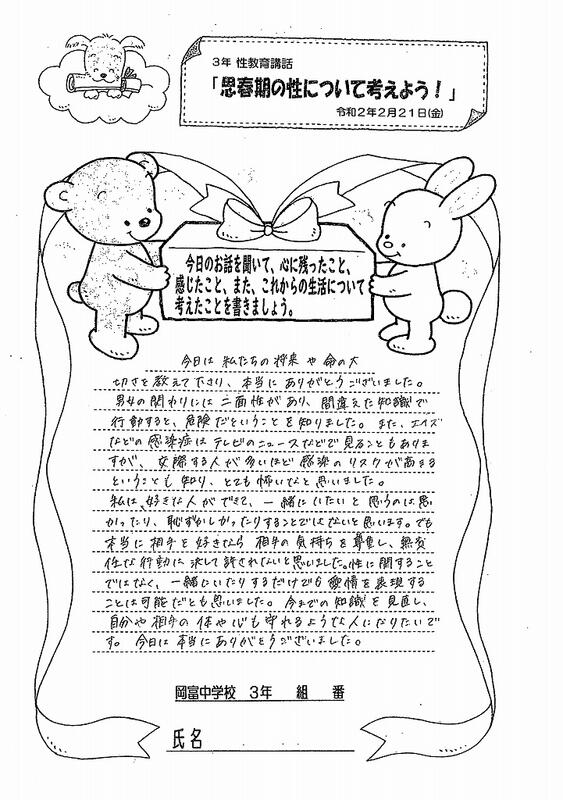 3年 性教育講話
「思春期の性について考えよう！」
令和2年2月21日(金)
今日のお話を聞いて、心に残ったこと、
感じたこと、また、これからの生活について
考えたことを書きましょう。
今日は 私たちの将来や命の大
切さを教えて下さり、本当に ありがとうございました。
男女の関わりには 二面性があり、間違えた知識で
行動すると、危険だということを知りました。また、エイズ
などの感染症は テレビのニュースなどで見ることもありま
すが、交際する人が多いほど感染のリスクが高まる
ということも知り、とても怖いなと思いました。
私は、好きな人ができて、一緒にいたいと思うのは悪
かったり、恥ずかしかったりすることではないと思います。でも
本当に相手を好きなら 相手の気持ちを尊重し、無責
任な行動に 決して許されないと思いました。性に関すること
ではなく、一緒にいたりするだけでも愛情を表現する
ことは可能だとも思いました。今までの知識を見直し、
自分や相手の体や心も守れるような人になりたいで
す。今日は本当にありがとうございました。
岡富中学校 3年 組 番
氏名